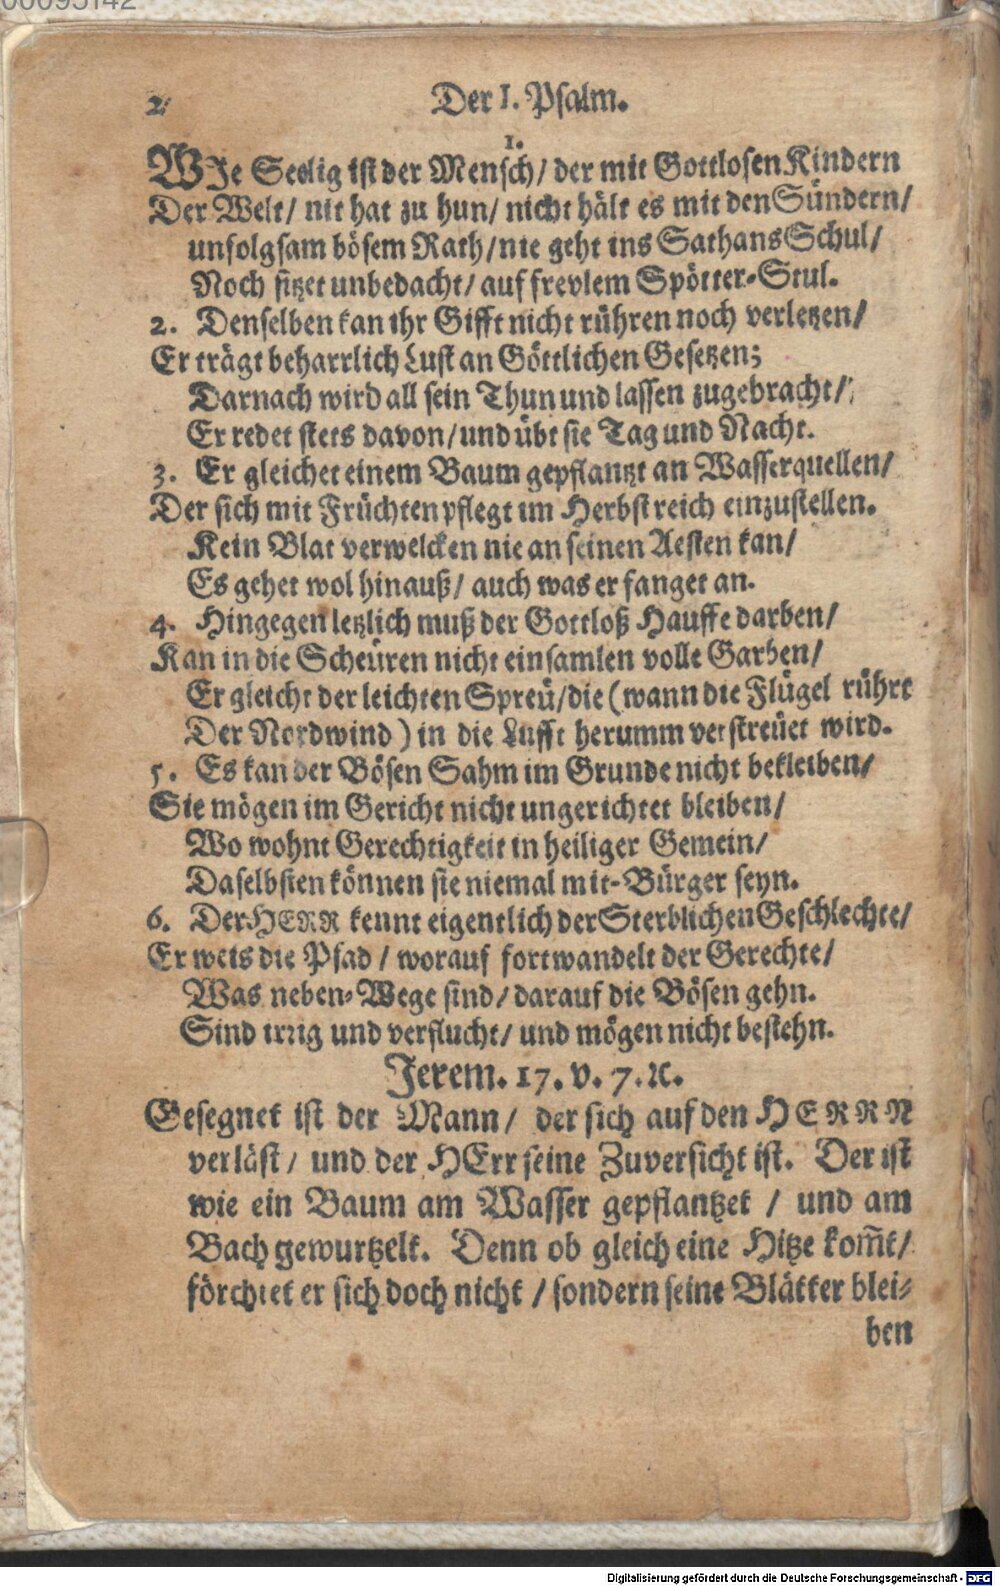 2
Der I. Psalm.
1.
WJe Seelig ist der Mensch/ der mit Gottlosen Kindern
Der Welt/ nit hat zu hun/ nicht hält es mit den Sündern/
unfolgsam bösem Rath/ nie geht ins Sathans Schul/
Noch sitzet unbedacht/ auf frevlem Spötter-Stul.
2. Denselben kan ihr Gifft nicht rühren noch verletzen/
Er trägt beharrlich Lust an Göttlichen Gesetzen;
Darnach wird all sein Thun und lassen zugebracht/
Er redet stets davon/ und übt sie Tag und Nacht.
3. Er gleichet einem Baum gepflantzt an Wasserquellen/
Der sich mit Früchten pflegt im Herbst reich einzustellen.
Kein Blat verwelcken nie an seinen Aesten kan/
Es gehet wol hinauß/ auch was er fanget an.
4. Hingegen letzlich muß der Gottloß Hauffe darben/
Kan in die Scheüren nicht einsamlen volle Garben/
Er gleicht der leichten Spreü/ die (wann die Flügel rührt
Der Nordwind) in die Lufft herumm verstreüet wird.
5. Es kan der Bösen Sahm im Grunde nicht bekleiben/
Sie mögen im Gericht nicht ungerichtet bleiben/
Wo wohnt Gerechtigkeit in heiliger Gemein/
Daselbsten können sie niemal mit-Bürger seyn.
6. Der HERR kennt eigentlich der Sterblichen Geschlechte/
Er weis die Pfad/ worauf fortwandelt der Gerechte/
Was neben-Wege sind/ darauf die Bösen gehn.
Sind irrig und verflucht/ und mögen nicht bestehn.
Jerem. 17. v. 7. ꝛc.
Gesegnet ist der Mann/ der sich auf den HERRN
verläst/ und der HErr seine Zuversicht ist. Der ist
wie ein Baum am Wasser gepflantzet / und am
Bach gewurtzelt. Denn ob gleich eine Hitze kom̃t/
förchtet er sich doch nicht / sondern seine Blätter blei-
ben
Digitalisierung gefördert durch die Deutsche Forschungsgemeinschaft - DFG